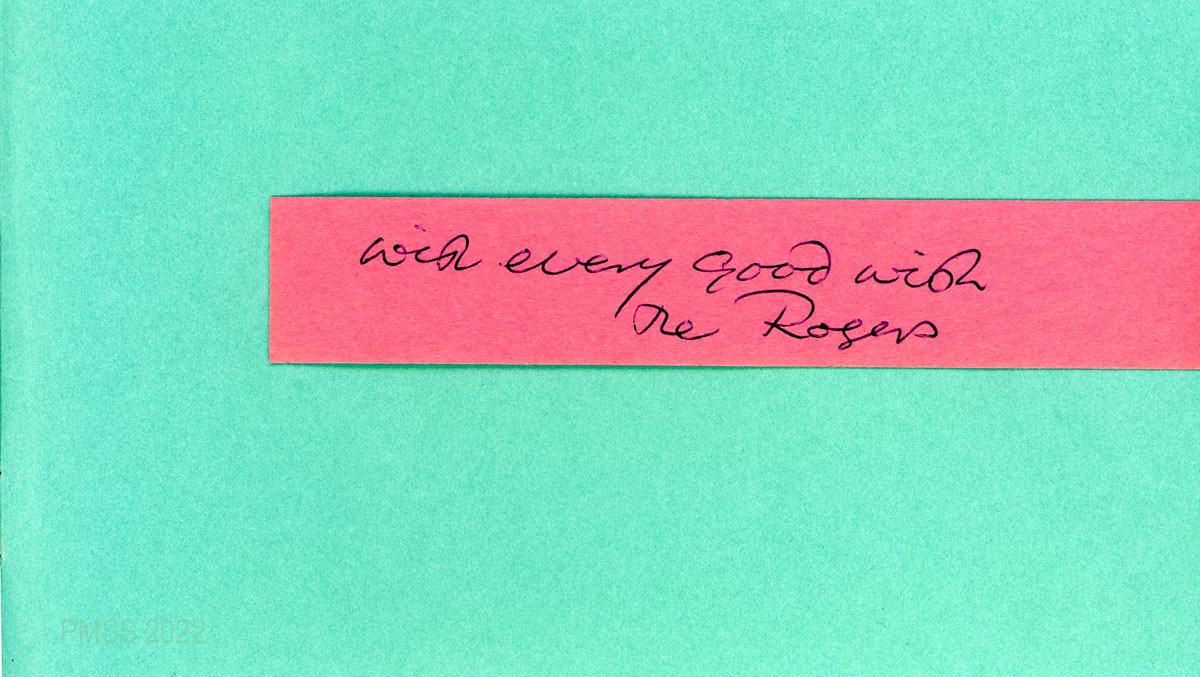 with every good wish
The Rogers
PMSS 2022